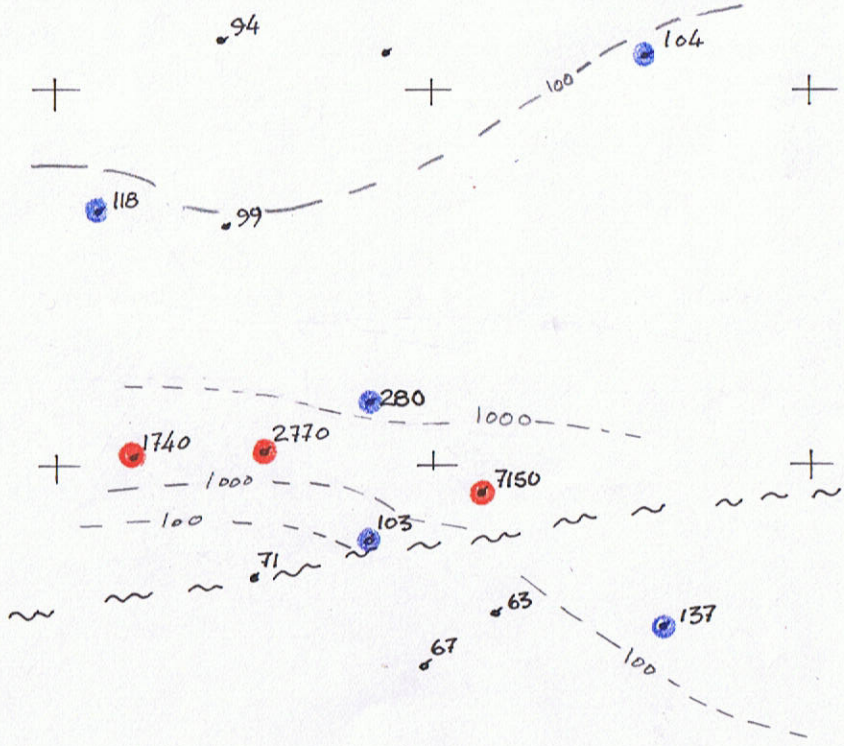 94
104
100
118
99
280
1000
1740
2770
7150
1000
100
103
71
63
137
67
100